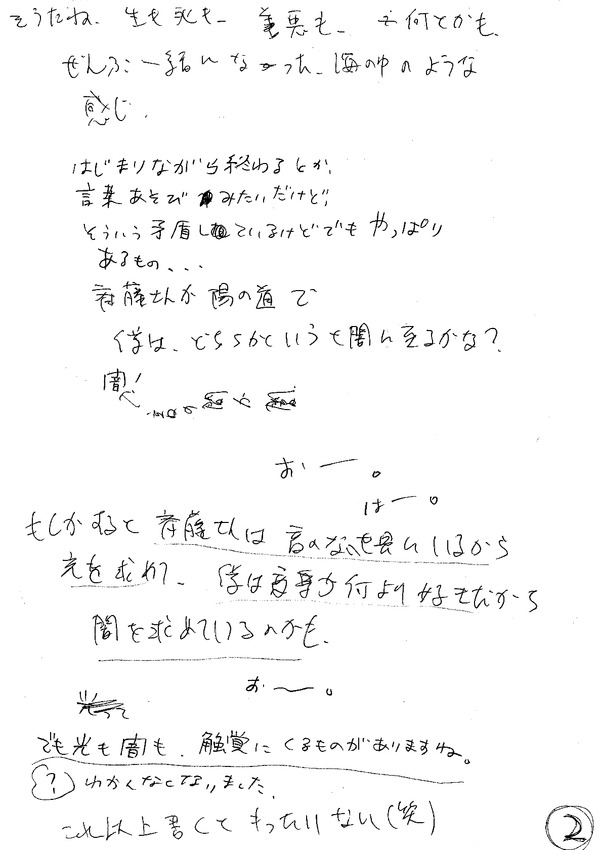 そうだね、生も死も、善悪も、何とかも、
ぜんぶ一緒になった、海の中のような
感じ、
はじまりながら終わるとか、
言葉あそびみたいだけど、
そういう矛盾しているけどでもやっぱり
あるもの、、、
斉藤さんが陽の道で
僕は、どちらかというと闇に至るかな?
闇!
おー。
はー。
もしかすると斉藤さんは音のない世界にいるから
光を求めて、僕は音等が何より好きだから
闇を求めているのかも、
おー。
でも光も闇も、触覚にくるものがありますね。
(?)わかくなくなりました、
これ以上書くともったいない(笑)
2